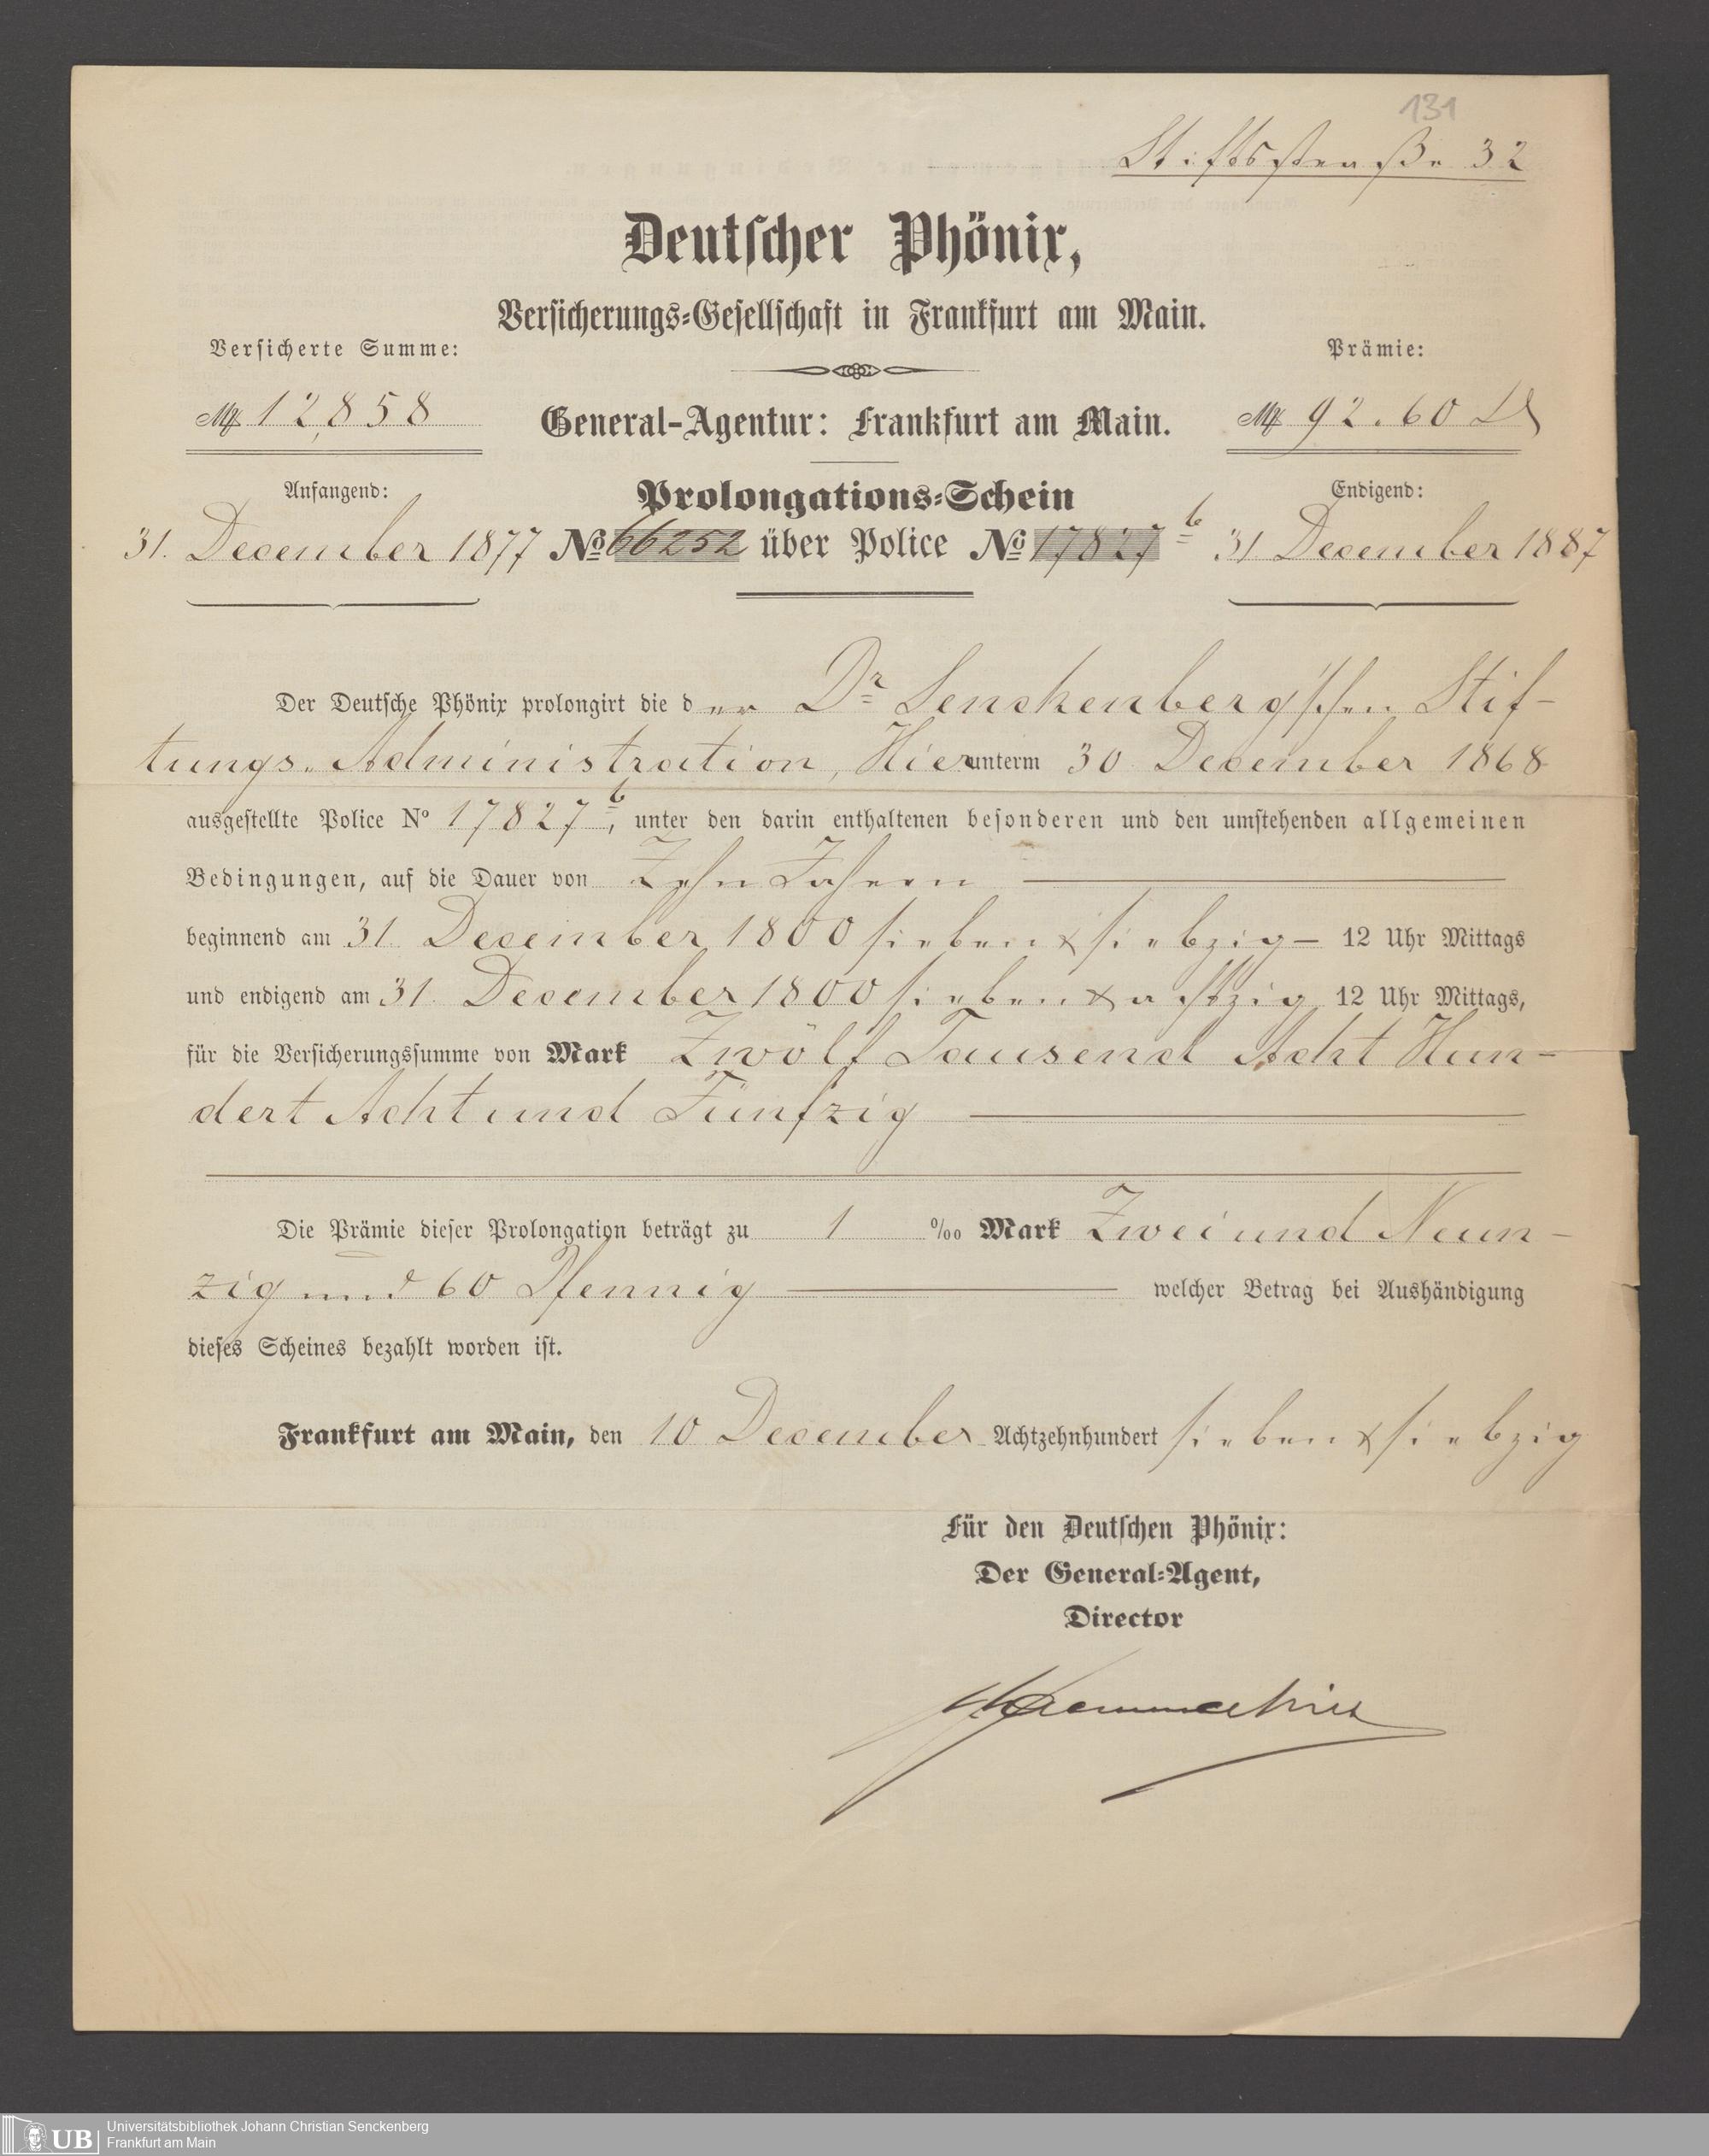 131
Stiftsstraße 32
Deutscher Phönix,
Versicherungs-Gesellschaft in Frankfurt am Main.
Versicherte Summe:
Prämie:
M 12,858
General-Agentur: Frankfurt am Main.
M 92.60 d
Anfangend:
Prolongations-Schein
Endigend:
31. December 1877 No 66252 über Police No 17827 b 31 December 1887
Der Deutsche Phönix prolongirt die der Dr Senckenberg'schen Stif-
tungs-Administration, Hier unterm 30 December 1868
ausgestellte Police No 17827 b, unter den darin enthaltenen besonderen und den umstehenden allgemeinen
Bedingungen, auf die Dauer von Zehn Jahren
beginnend am 31. December 1800 sieben & siebzig — 12 Uhr Mittags
und endigend am 31. December 1800 sieben & achtzig 12 Uhr Mittags,
für die Versicherungssumme von Mark Zwölf Tausend Acht Hun-
dert Acht und Fünfzig
Die Prämie dieser Prolongation beträgt zu 1 ‰ Mark Zwei und Neun-
zig und 60 Pfennig welcher Betrag bei Aushändigung
dieses Scheines bezahlt worden ist.
Frankfurt am Main, den 10 December Achtzehnhundert sieben & siebzig
Für den Deutschen Phönix:
Der General-Agent,
Director
UB Universitätsbibliothek Johann Christian Senckenberg
Frankfurt am Main